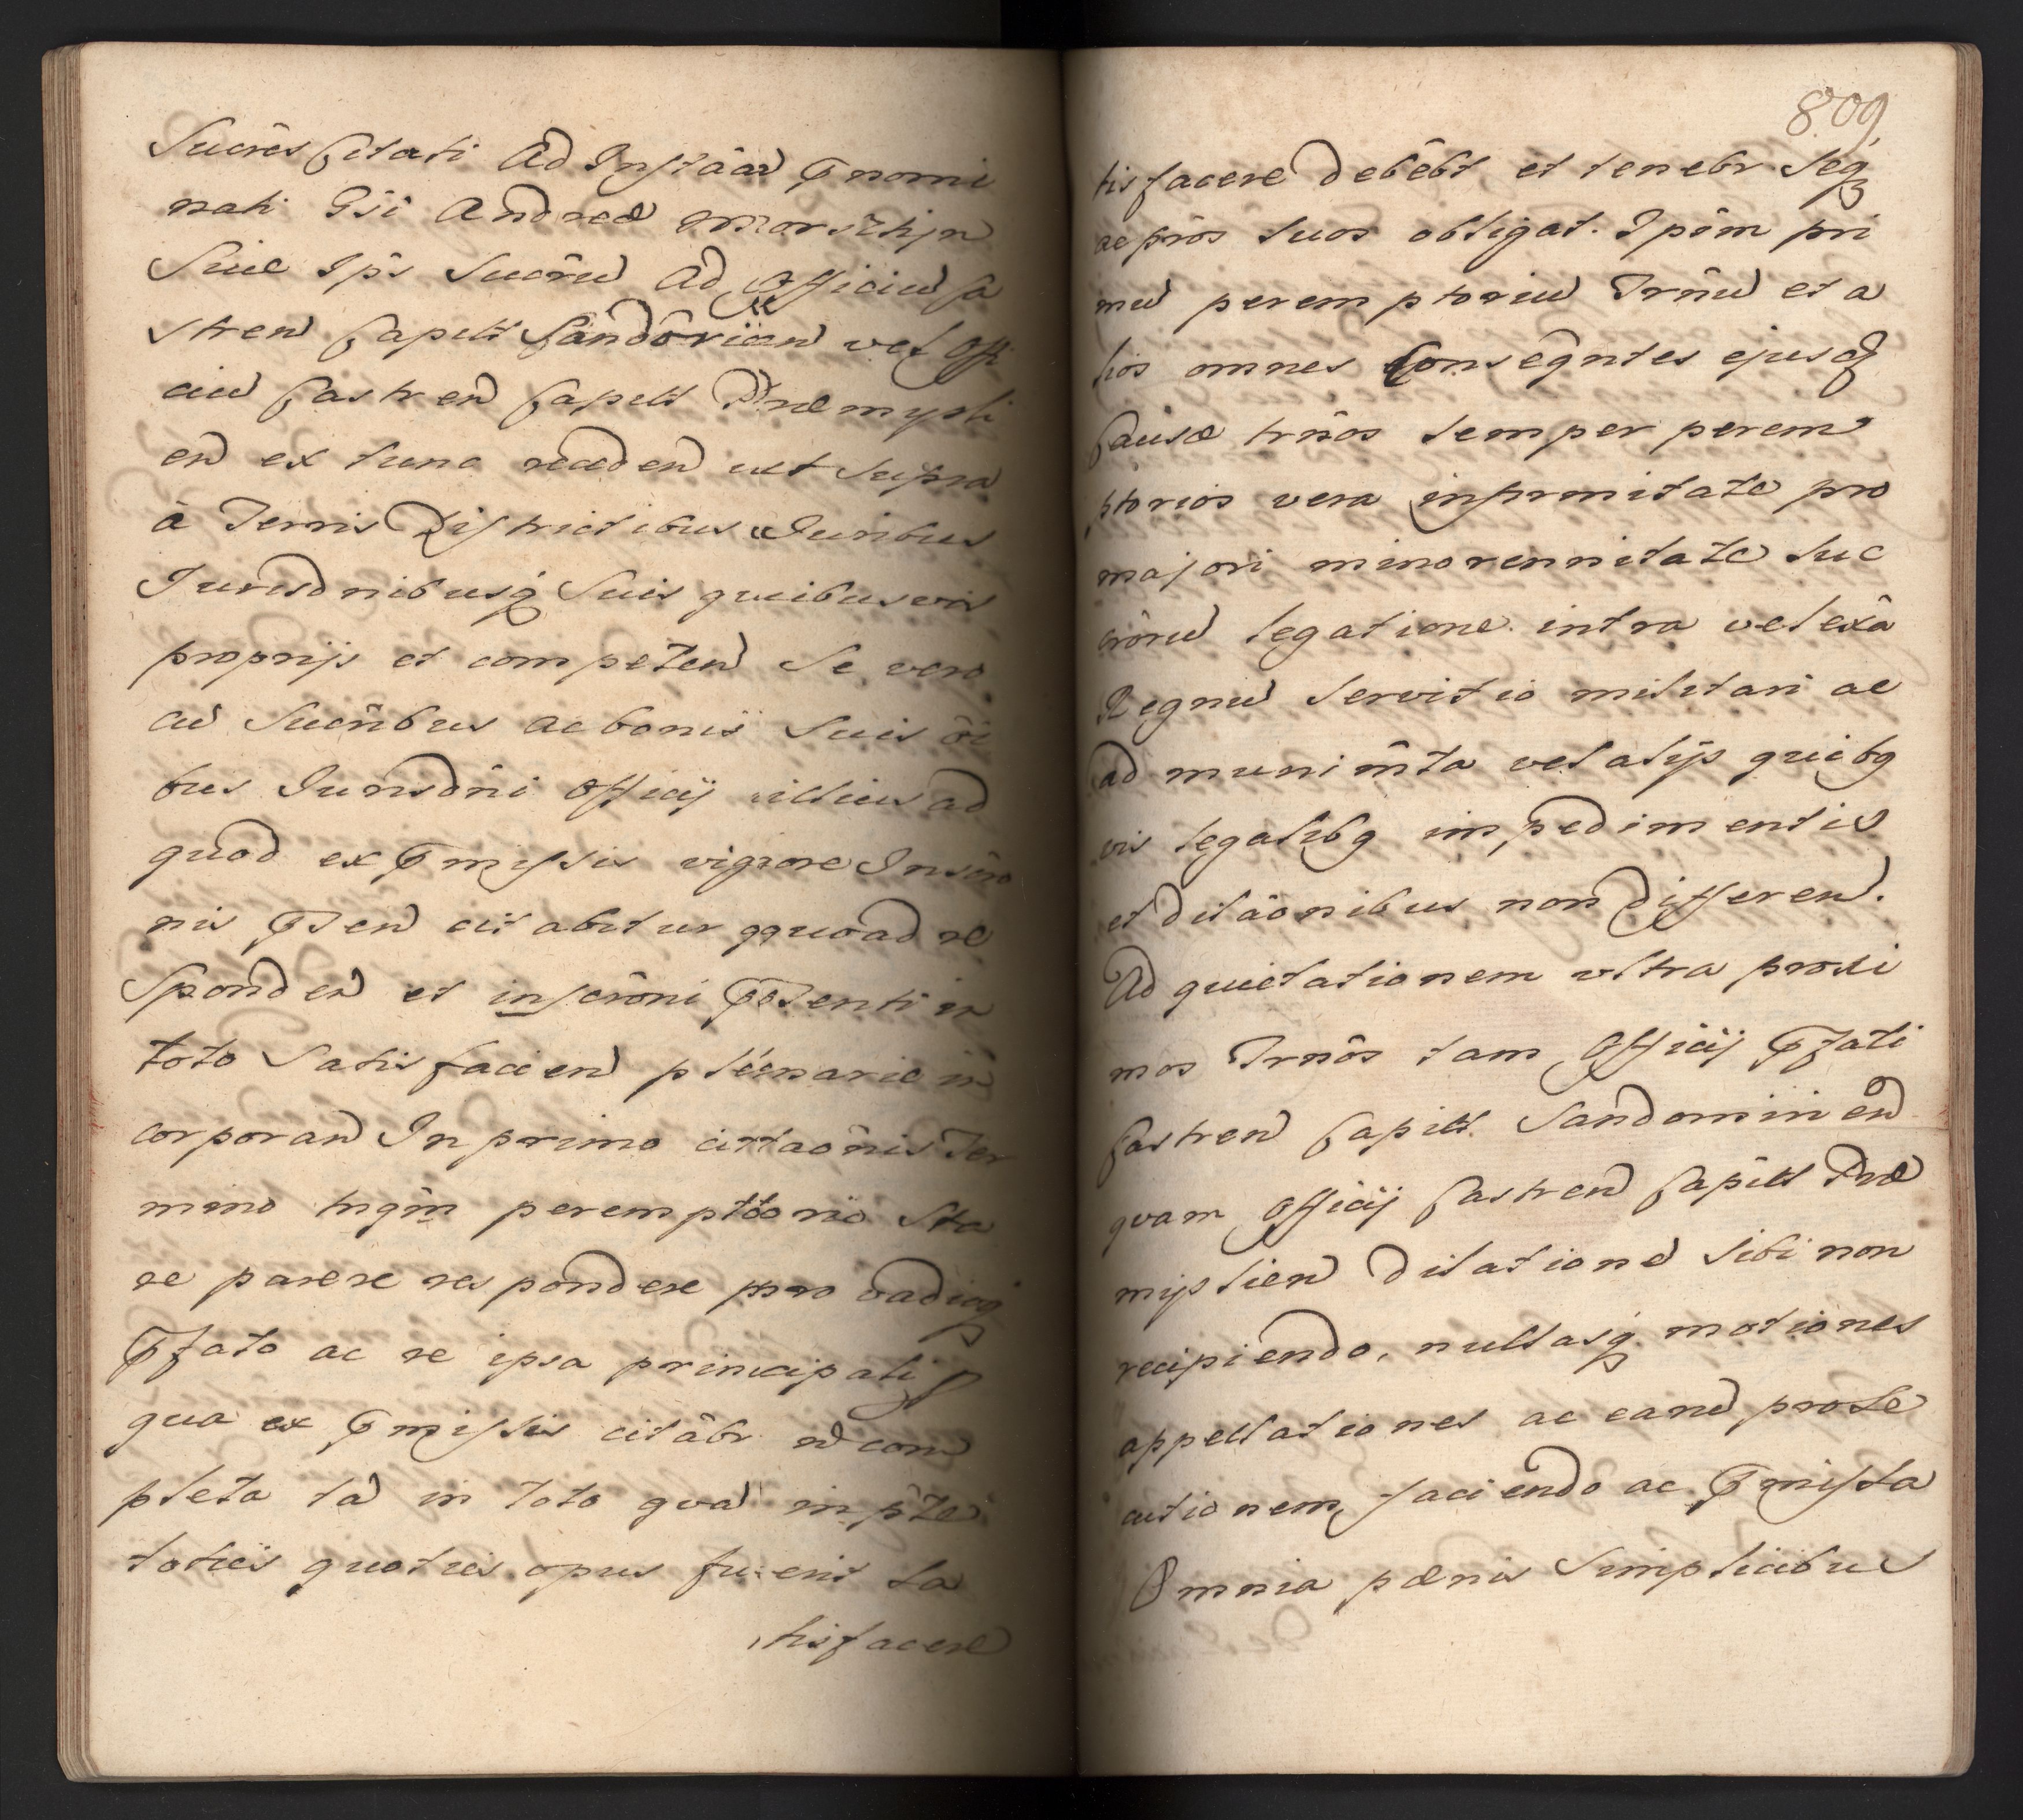 Sucrēs Citati Ad Instāād prnomi
nati Gsi Andreæ Morsztijn
Siue Ipīs Sucrūd Ad Officiud Ca
strend Capitt Sandōriiend vel Offi
ciud Castrend Capitt Præmysli
en̄d ex tunc recedend ut supra
à Terris Districtibus Iuribus
Jurisdnibusq Suis quibusvis
proprijs et competend Se vero
cū Sucribus ac bonis Suis ōi
bus Jurisdni Officij illius ad
quod ex prmissis vigore Inscro
nis prsend citabitur qquoad re
sponden̄d et inscrōni prsenti in
toto Satisfaciend plenarie in
corporand In primo citaōnis Ter
mino tnqm peremptorio Sta
re parere respondere pro vadioq
prfato ac re ipsa principali p
qua ex prmissis citābr nō com
pleta tā in toto qvā in pte
toties quoties opus fuerit sa
tisfacere
809
tisfacere debēbt et tenebr Seq
ac sūos suos obligat. Ipōm pri
mud peremptoriud Trnūd et a
lios omnes Conseqntes ejusd
Causæ trnos semper perem
ptorios vera infirmitate pro
majori minorennitate Suc
crōrud legatione intra vel extā
Regnud servitio militari ac
ad munimta vel alijs quibq
vis legalibq impedimentis
et dilāonibus non differend.
Ad quietationem ultra proxi
mos Trnōs tam Officij prfati
Castrend Capitt. Sandomirien̄d
qvam Officij Castrend Capitt Præ
mislien̄d dilationed Sibi non
recipiendo, nullasq motiones
appellationes ac eand prose
cutionem faciendo ac prmissa
Omnia pænis Simplicibus